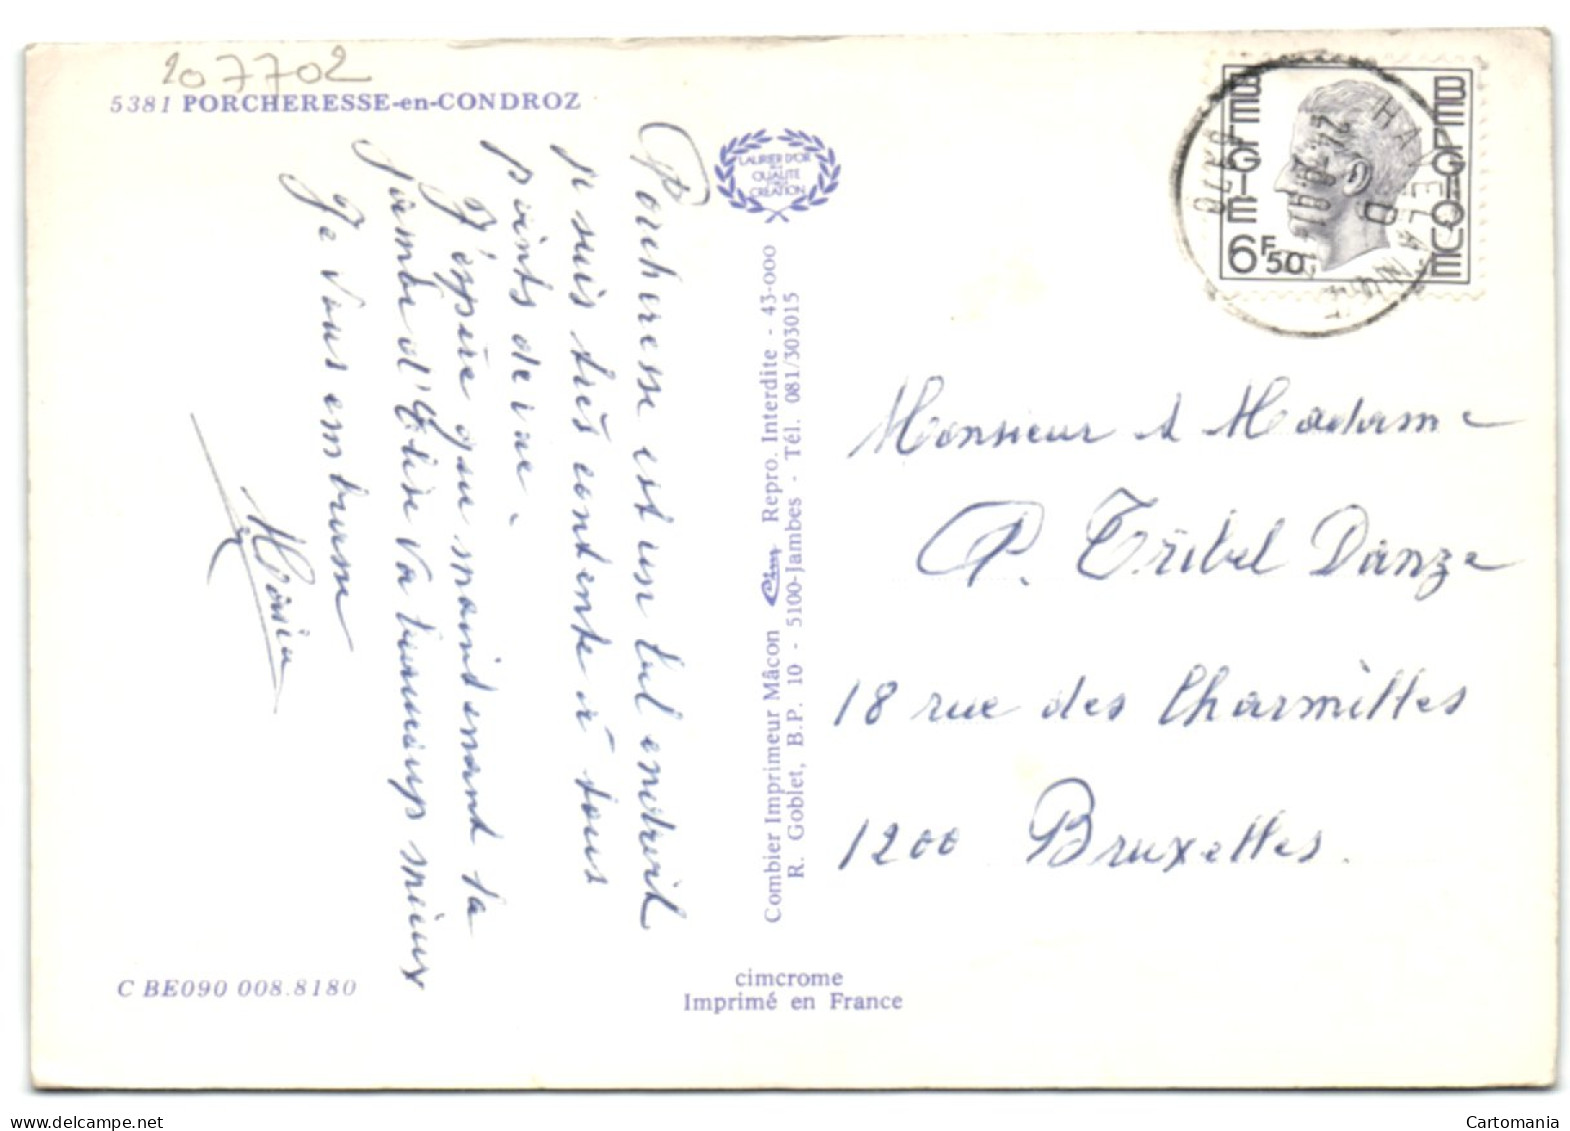 207702
5381 PORCHERESSE-en-CONDROZ
Porcheresse est un bel endroit
je suis très contente à tous
points de vue.
J'espère que maintenant la
jambe d'Elise va beaucoup mieux
Je vous embrasse
LAURIER D'OR
QUALITÉ
CRÉATION
Combier Imprimeur Mâcon Cim Repro. Interdite - 43-000
R. Goblet, B.P. 10 - 5100-Jambes - Tél. 081/303015
C BE090 008.8180
cimcrome
Imprimé en France
BELGIE
BELGIQUE
6F50
HAVELANGE
5370
Monsieur & Madame
P. Tribel Danze
18 rue des Charmilles
1200 Bruxelles.
Cartomania